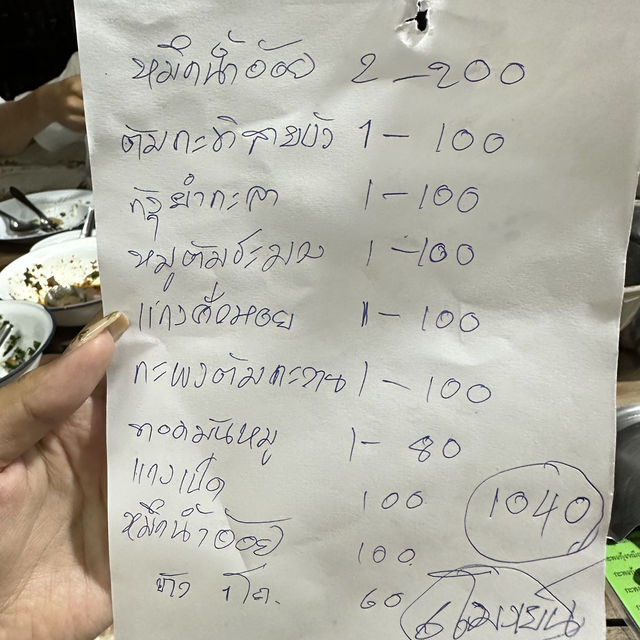 หมึกน้ำอ้อย 2 - 200
ต้มกะทิสายบัว 1 - 100
ยำกะลา 1 - 100
หมูต้มชะมวง 1 - 100
แกงคั่วหอย 1 - 100
กะพงต้ม 1 - 100
ทอดมันหมู 1 - 80
แกงเป็ด 100
หมึกน้ำอ้อย 100
ข้าว 1โถ. 60
1040